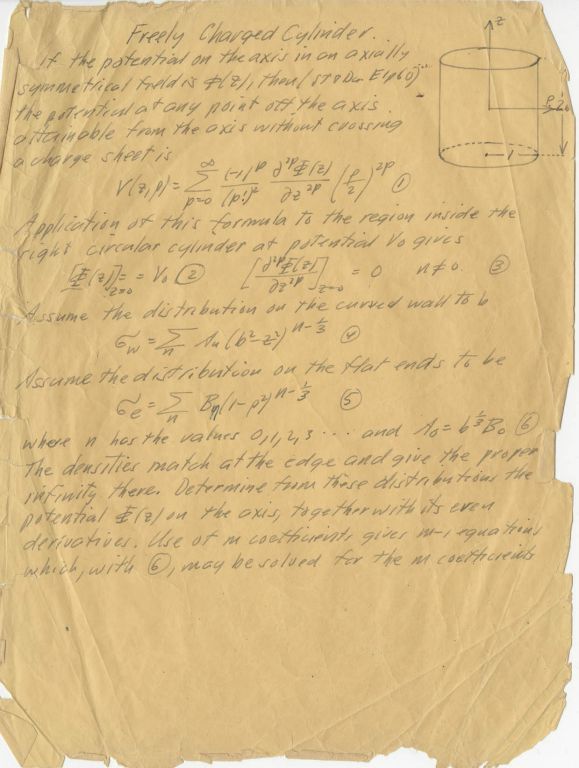 Freely Charged Cylinder.
If the potential on the axis in an axially
symmetrical field is Φ(z), then
the potential at any point off the axis
attainable from the axis without crossing
a charge sheet is
V(z,ρ) = Σ_{p=0}^{∞} (-1)^p/(p!)² ∂^{2p}Φ(z)/∂z^{2p} (ρ/2)^{2p} ①
Application of this formula to the region inside the
right circular cylinder at potential V₀ gives
[Φ(z)]_{z=0} = V₀ ② [∂^{2p}Φ(z)/∂z^{2p}]_{z=0} = 0 n≠0. ③
Assume the distribution on the curved wall to b
σ_w = Σ_n A_n (b²-z²)^{n-1/3} ④
Assume the distribution on the flat ends to be
σ_e = Σ_n B_n (1-ρ²)^{n-1/3} ⑤
where n has the values 0,1,2,3 ... and A₀ = b^{1/3} B₀ ⑥
The densities match at the edge and give the proper
infinity there. Determine from these distributions the
potential Φ(z) on the axis, together with its even
derivatives. Use of m coefficients gives m-1 equations
which, with ⑥, may be solved for the m coefficients
z
1